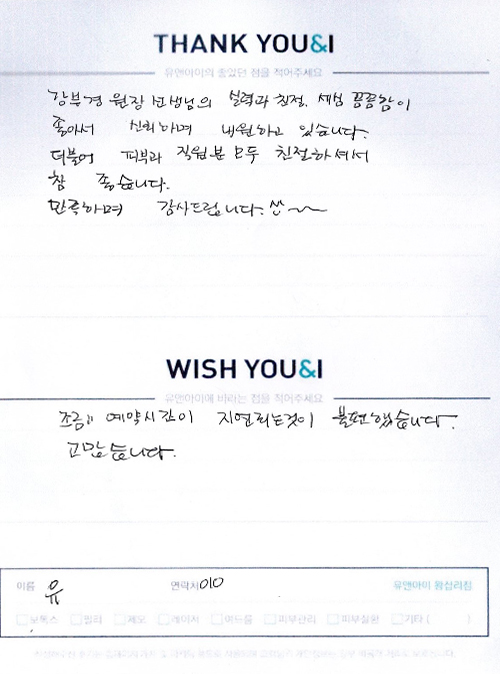 THANK YOU&I
유앤아이의 좋았던 점을 적어주세요
강부경 원장 선생님의 실력과 친절, 세심 꼼꼼함이
좋아서 신뢰하며 내원하고 있습니다.
더불어 피부과 직원분 모두 친절하셔서
참 좋습니다.
만족하며 감사드립니다. ^^~
WISH YOU&I
유앤아이에 바라는 점을 적어주세요
조금 예약시간이 지연되는것이 불편했습니다.
고맙습니다.
이름 유 연락처 010 유앤아이 왕십리점
보톡스 필러 제모 레이저 여드름 피부관리 피부질환 기타 ( )